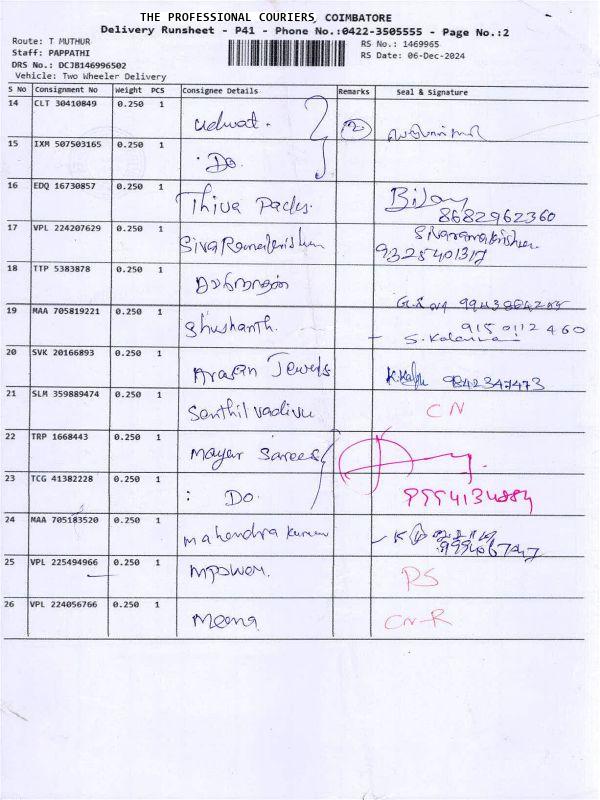 THE PROFESSIONAL COURIERS, COIMBATORE
Delivery Runsheet - P41 - Phone No.:0422-3505555 - Page No.:2
Route: T MUTHUR
Staff: PAPPATHI
DRS No.: DCJB146996502
Vehicle: Two Wheeler Delivery
RS No.: 1469965
RS Date: 06-Dec-2024
S No Consignment No Weight PCS Consignee Details Remarks Seal & Signature
14 CLT 30410849 0.250 1
15 IXM 507503165 0.250 1 Do.
16 EDQ 16730857 0.250 1 Thiva Packs.
8682962360
17 VPL 224207629 0.250 1 Siva Ramakrishnan Sivaramakrishnan
9325401317
18 TTP 5383878 0.250 1
19 MAA 705819221 0.250 1 Shushanth. 9150112460
20 SVK 20166893 0.250 1 Arasan Jewels 9842347473
21 SLM 359889474 0.250 1 Senthil vadivu CN
22 TRP 1668443 0.250 1 Mayar Sarees
23 TCG 41382228 0.250 1 : Do.
24 MAA 705183520 0.250 1 Mahendra Kumar
25 VPL 225494966 0.250 1 Mpower. RS
26 VPL 224056766 0.250 1 Meena CN-R